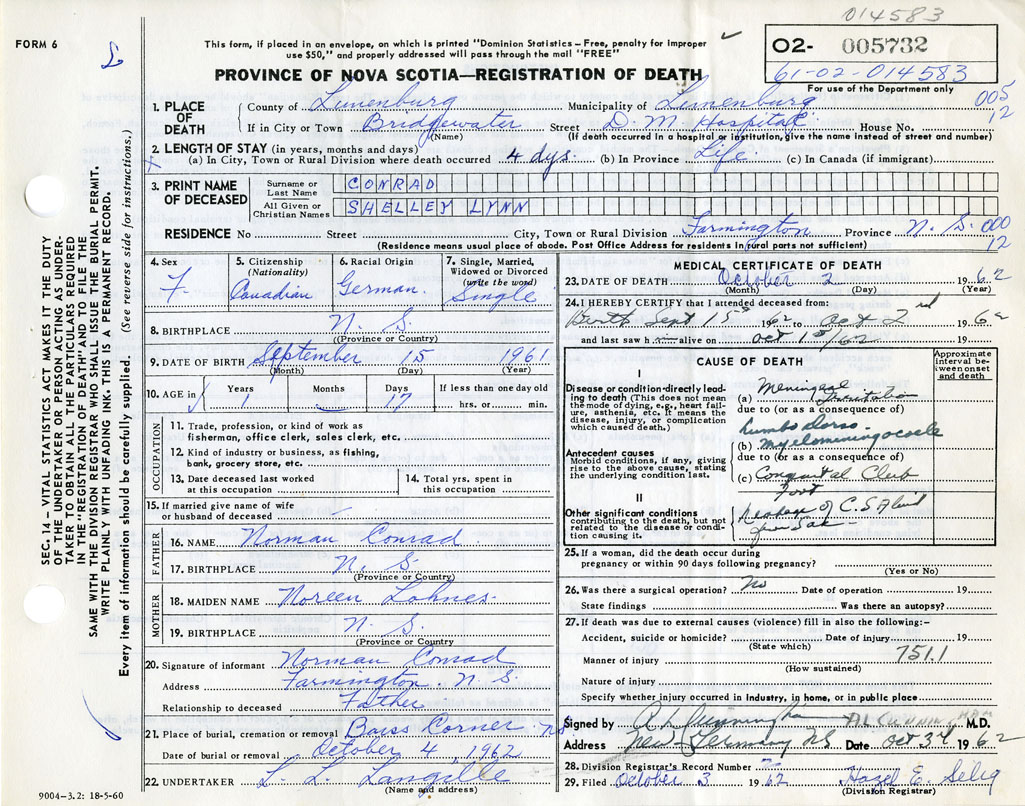 014583
FORM 6
This form, if placed in an envelope, on which is printed "Dominion Statistics – Free, penalty for improper
use $50," and properly addressed will pass through the mail "FREE"
02- 005732
61-02-014583
For use of the Department only
PROVINCE OF NOVA SCOTIA—REGISTRATION OF DEATH
005
12
1. PLACE OF DEATH County of Lunenburg Municipality of Lunenburg
If in City or Town Bridgewater Street D. M. Hospital House No.
(Name) (If death occurred in a hospital or institution, give the name instead of street and number)
2. LENGTH OF STAY (in years, months and days)
(a) In City, Town or Rural Division where death occurred 4 dys. (b) In Province Life (c) In Canada (if immigrant)
3. PRINT NAME OF DECEASED Surname or Last Name CONRAD
All Given or Christian Names SHELLEY LYNN
RESIDENCE No Street City, Town or Rural Division Farmington Province N. S. 000
12
(Residence means usual place of abode. Post Office Address for residents in rural parts not sufficient)
4. Sex F.
5. Citizenship (Nationality) Canadian
6. Racial Origin German.
7. Single, Married, Widowed or Divorced (write the word) Single
8. BIRTHPLACE N. S.
(Province or Country)
9. DATE OF BIRTH September 15 1961
(Month) (Day) (Year)
10. AGE in Years 1 Months — Days 17 If less than one day old hrs. or min.
OCCUPATION
11. Trade, profession, or kind of work as
fisherman, office clerk, sales clerk, etc.
12. Kind of industry or business, as fishing,
bank, grocery store, etc.
13. Date deceased last worked
at this occupation
14. Total yrs. spent in
this occupation
15. If married give name of wife
or husband of deceased —
FATHER
16. NAME Norman Conrad
17. BIRTHPLACE N. S.
(Province or Country)
MOTHER
18. MAIDEN NAME Noreen Lohnes
19. BIRTHPLACE N. S.
(Province or Country)
20. Signature of informant Norman Conrad
Address Farmington. N. S.
Relationship to deceased Father
21. Place of burial, cremation or removal Barss Corner. NS
Date of burial or removal October 4, 1962
22. UNDERTAKER L. L. Langille
(Name and address)
9004–3.2: 18-5-60
MEDICAL CERTIFICATE OF DEATH
23. DATE OF DEATH October 2 1962
(Month) (Day) (Year)
24. I HEREBY CERTIFY that I attended deceased from:
Birth Sept 15th 1962 to Oct 2nd 1962
and last saw h alive on Oct 1st/62 19
CAUSE OF DEATH
Approximate interval between onset and death
I
Disease or condition directly leading to death (This does not mean the mode of dying, e.g., heart failure, asthenia, etc. It means the disease, injury, or complication which caused death.)
(a) Meningeal Irritation
due to (or as a consequence of)
Lumbo Dorso
(b) Myelomeningocele
due to (or as a consequence of)
Antecedent causes
Morbid conditions, if any, giving rise to the above cause, stating the underlying condition last.
(c) Congenital Club
Foot
II
Other significant conditions
contributing to the death, but not related to the disease or condition causing it.
Leakage of C.S Fluid
from Sac
25. If a woman, did the death occur during
pregnancy or within 90 days following pregnancy?
(Yes or No)
26. Was there a surgical operation? No Date of operation 19
State findings Was there an autopsy?
27. If death was due to external causes (violence) fill in also the following:-
Accident, suicide or homicide? Date of injury 19
(State which)
751.1
Manner of injury
(How sustained)
Nature of injury
Specify whether injury occurred in industry, in home, or in public place
Signed by A L Cunningham M.D.
Address New Germany NS Date Oct 3rd 1962
28. Division Registrar's Record Number
29. Filed October 3 1962 Hazel E. Selig
(Division Registrar)
SEC. 14 – VITAL STATISTICS ACT MAKES IT THE DUTY
OF THE UNDERTAKER OR PERSON ACTING AS UNDER-
TAKER TO OBTAIN ALL THE PARTICULARS REQUIRED
IN THE "REGISTRATION OF DEATH" AND TO FILE THE
SAME WITH THE DIVISION REGISTRAR WHO SHALL ISSUE THE BURIAL PERMIT.
WRITE PLAINLY WITH UNFADING INK. THIS IS A PERMANENT RECORD.
Every item of information should be carefully supplied. (See reverse side for instructions.)